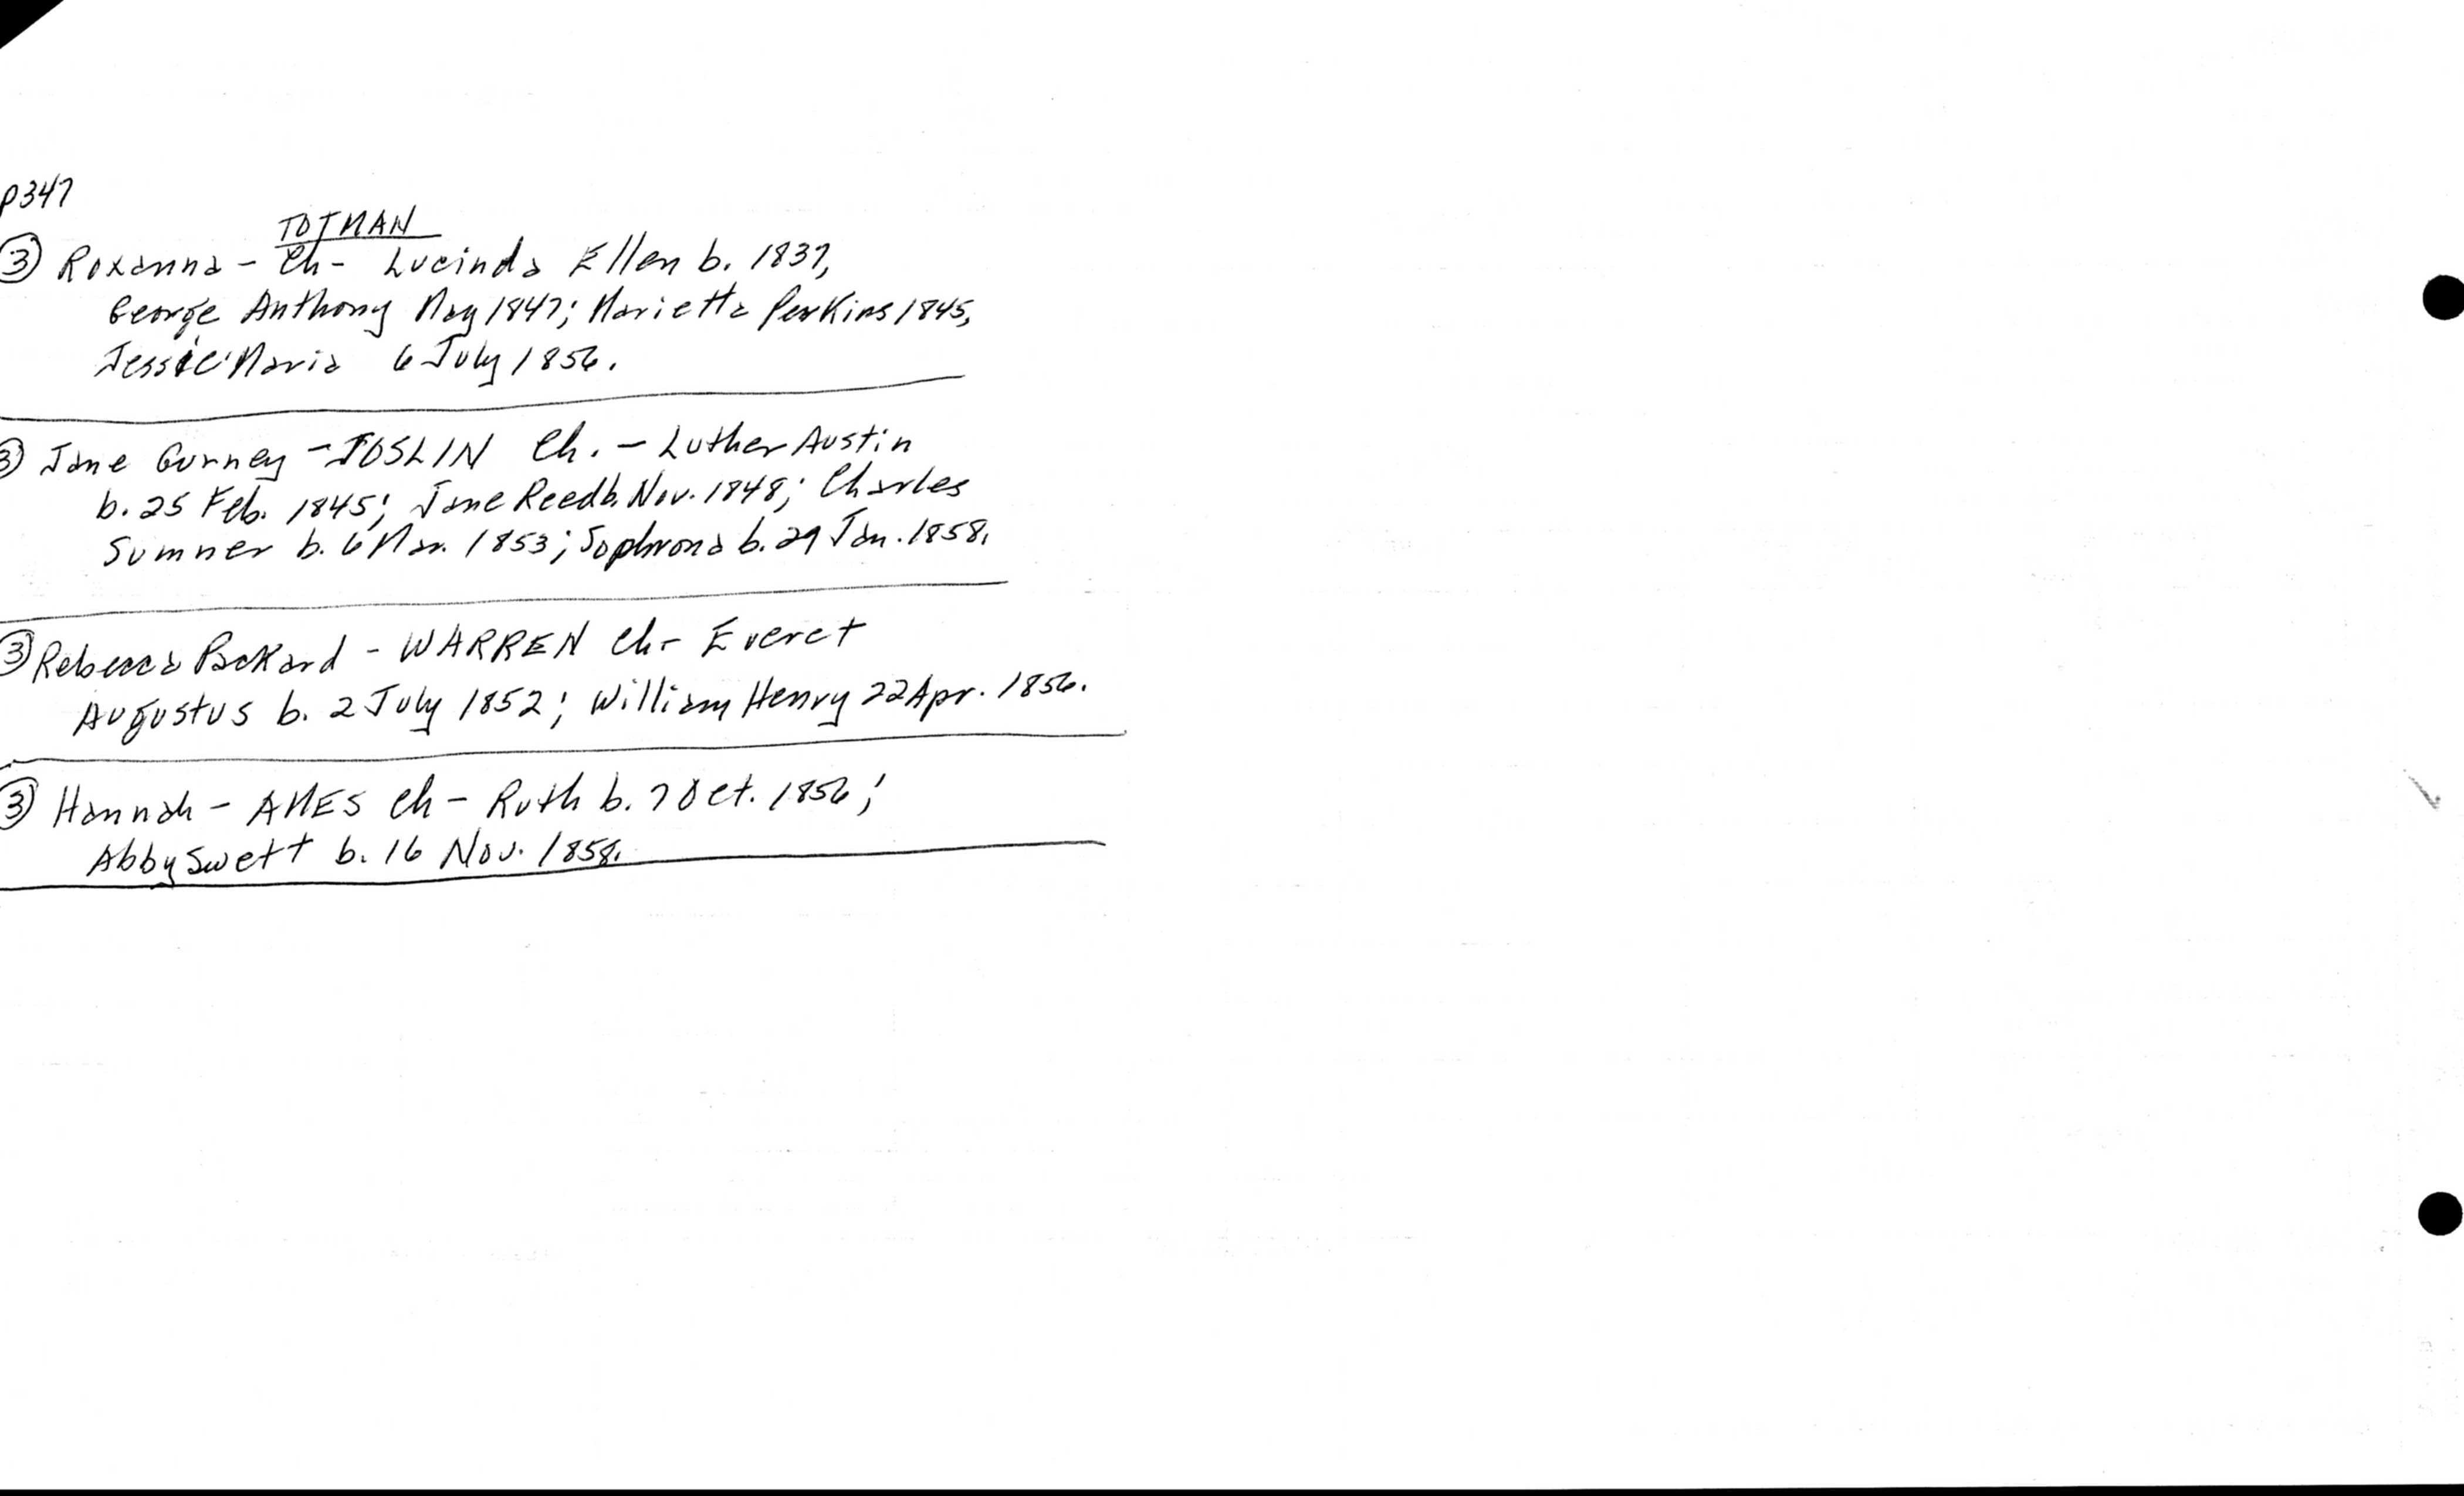 p347
TOTMAN
③ Roxanna - Ch - Lucinda Ellen b. 1837,
George Anthony May 1847; Marietta Perkins 1845,
Jessie Maria 6 July 1856.
③ Jane Gurney - JOSLIN Ch. - Luther Austin
b. 25 Feb. 1845; Jane Reed b. Nov. 1848; Charles
Sumner b. 6 Mar. 1853; Sophrona b. 29 Jan. 1858.
③ Rebecca Packard - WARREN Ch - Everet
Augustus b. 2 July 1852; William Henry 22 Apr. 1856.
③ Hannah - AMES Ch - Ruth b. 7 Oct. 1856;
Abby Swett b. 16 Nov. 1858.